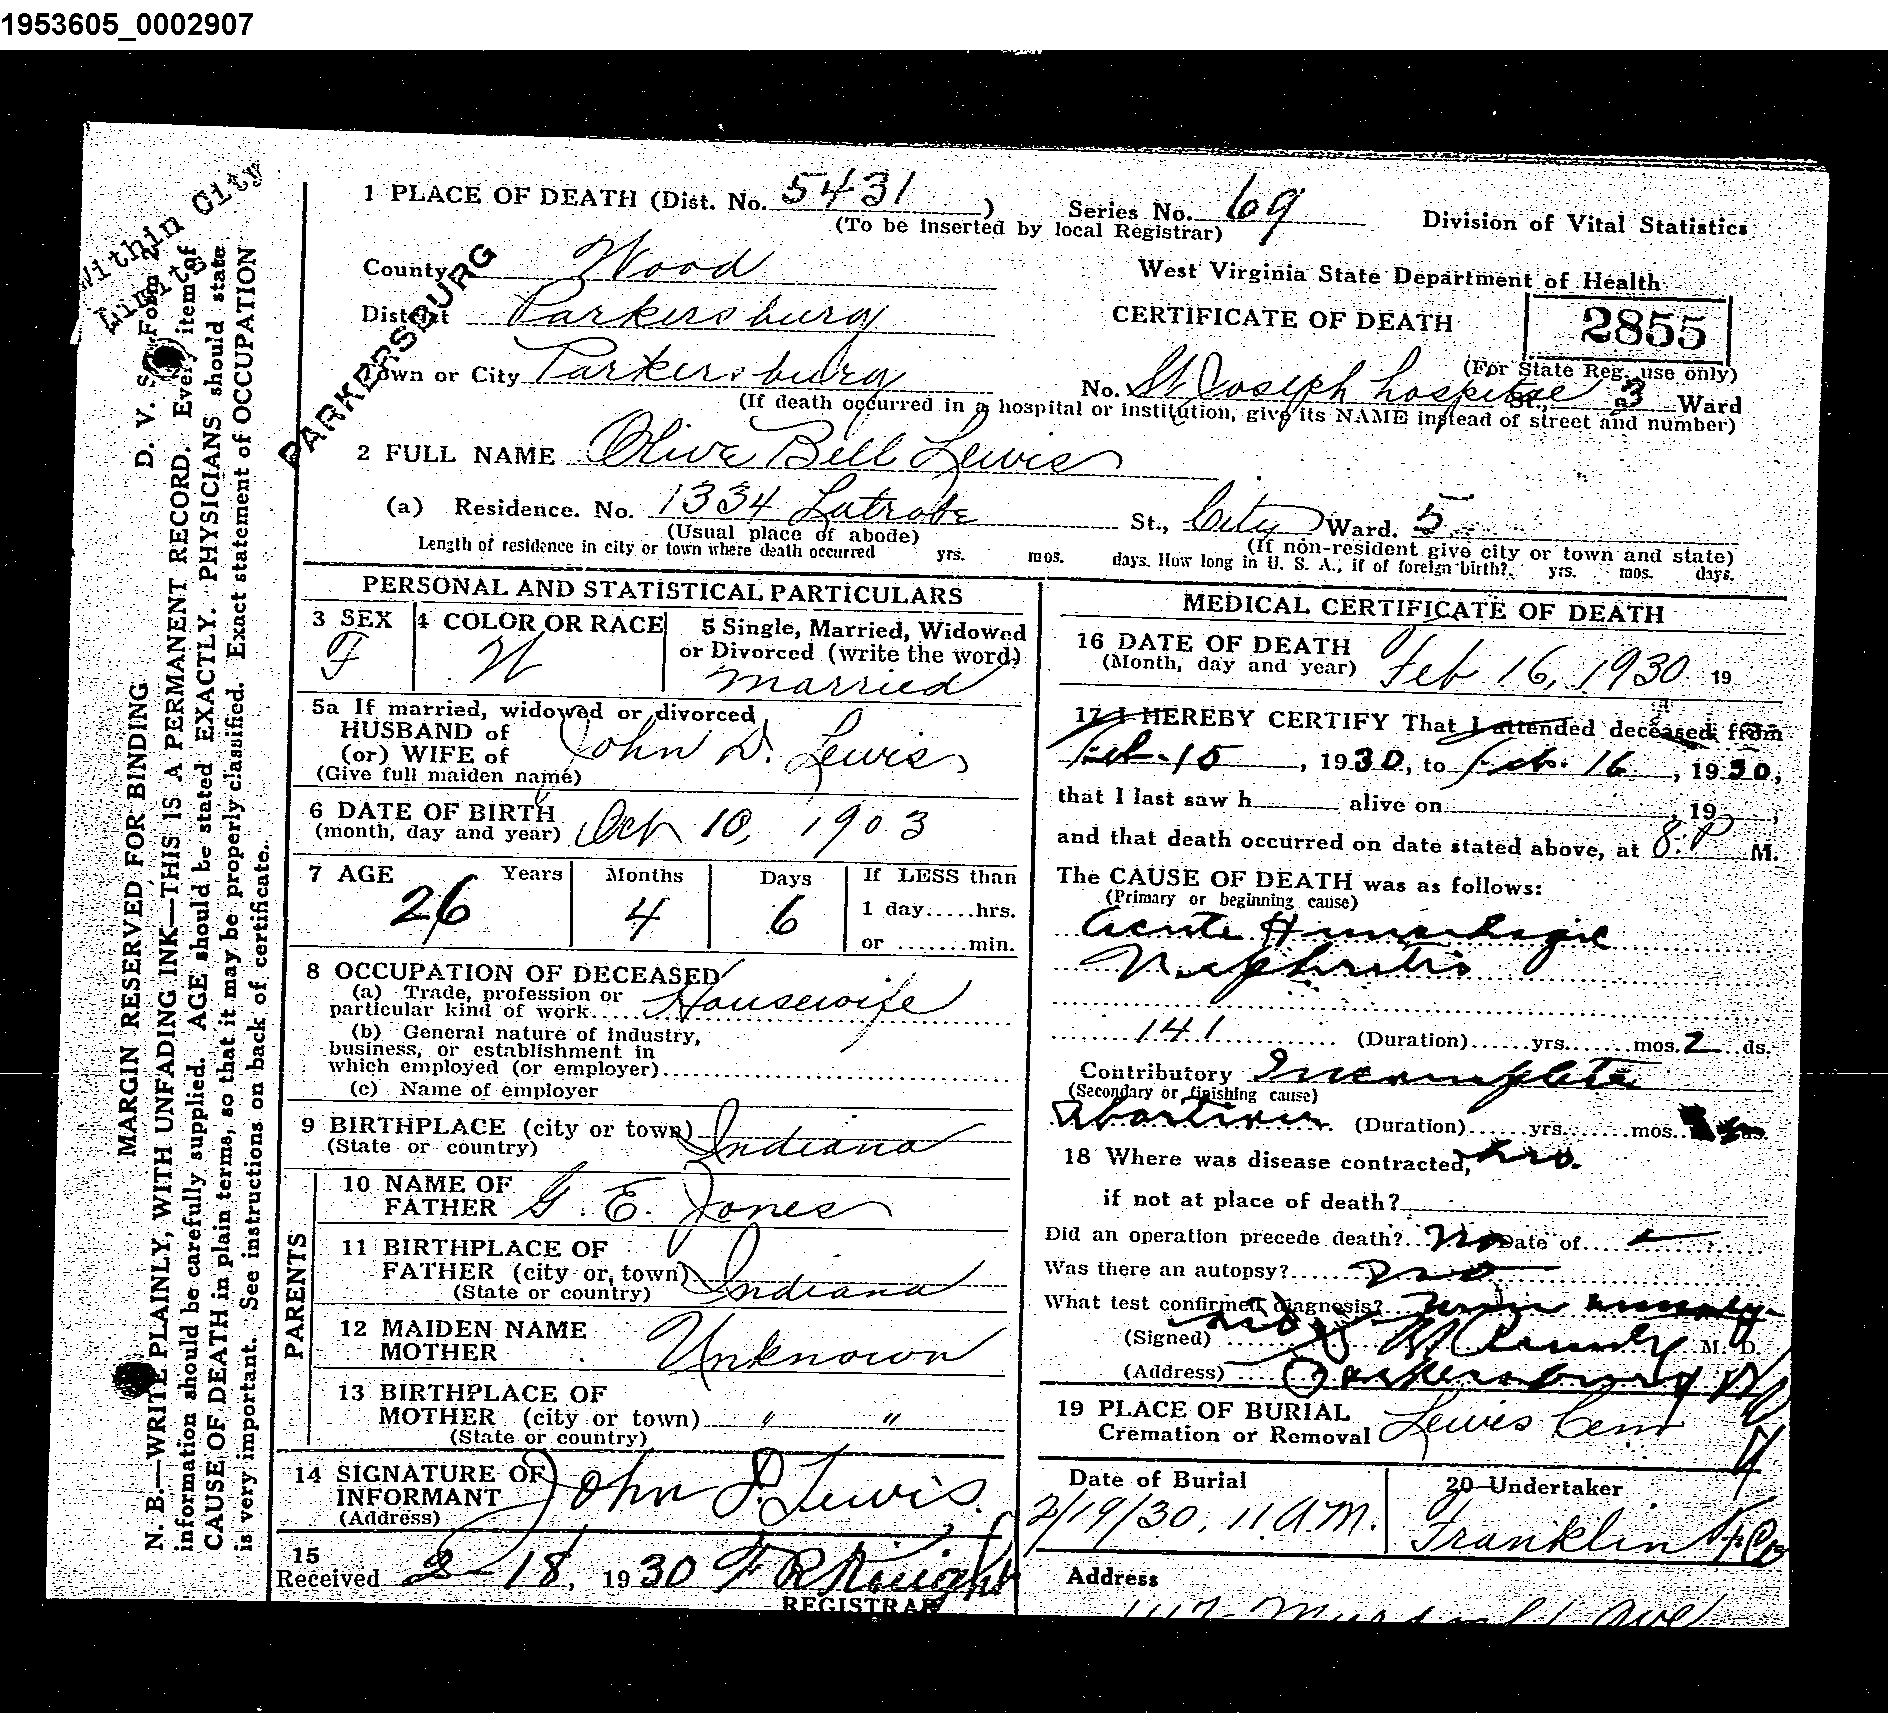 1953605_0002907
Within City
Limits
PARKERSBURG
MARGIN RESERVED FOR BINDING D. V. S. Form
N. B.—WRITE PLAINLY, WITH UNFADING INK—THIS IS A PERMANENT RECORD. Every item of
information should be carefully supplied. AGE should be stated EXACTLY. PHYSICIANS should state
CAUSE OF DEATH in plain terms, so that it may be properly classified. Exact statement of OCCUPATION
is very important. See instructions on back of certificate.
1 PLACE OF DEATH (Dist. No. 5431 ) Series No. 69 Division of Vital Statistics
(To be inserted by local Registrar)
County Wood West Virginia State Department of Health
District Parkersburg CERTIFICATE OF DEATH 2855
(For State Reg. use only)
Town or City Parkersburg No. St Joseph hospital St., 3 Ward
(If death occurred in a hospital or institution, give its NAME instead of street and number)
2 FULL NAME Olive Bell Lewis
(a) Residence. No. 1334 Latrobe St., City Ward. 5
(Usual place of abode) (If non-resident give city or town and state)
Length of residence in city or town where death occurred yrs. mos. days. How long in U. S. A., if of foreign birth? yrs. mos. days.
PERSONAL AND STATISTICAL PARTICULARS
3 SEX 4 COLOR OR RACE 5 Single, Married, Widowed
or Divorced (write the word)
F W married
5a If married, widowed or divorced
HUSBAND of
(or) WIFE of John D. Lewis
(Give full maiden name)
6 DATE OF BIRTH
(month, day and year) Oct 10, 1903
7 AGE Years Months Days If LESS than
26 4 6 1 day.....hrs.
or .......min.
8 OCCUPATION OF DECEASED
(a) Trade, profession or
particular kind of work Housewife
(b) General nature of industry,
business, or establishment in
which employed (or employer)
(c) Name of employer
9 BIRTHPLACE (city or town) Indiana
(State or country)
PARENTS
10 NAME OF
FATHER G. E. Jones
11 BIRTHPLACE OF
FATHER (city or town) Indiana
(State or country)
12 MAIDEN NAME
MOTHER Unknown
13 BIRTHPLACE OF
MOTHER (city or town) " "
(State or country)
14 SIGNATURE OF
INFORMANT John D. Lewis.
(Address)
15
Received 2-18, 1930 F R Knight
REGISTRAR
MEDICAL CERTIFICATE OF DEATH
16 DATE OF DEATH
(Month, day and year) Feb 16, 1930 19
17 I HEREBY CERTIFY That I attended deceased from
Feb. 15, 1930, to Feb. 16, 1930,
that I last saw h alive on , 19 ,
and that death occurred on date stated above, at 8:P M.
The CAUSE OF DEATH was as follows:
(Primary or beginning cause)
acute Hemorhagic
Nephritis
141 (Duration)......yrs.......mos. 2 ds.
Contributory Incomplete
(Secondary or finishing cause)
abortion (Duration)......yrs.......mos. ds.
18 Where was disease contracted,
if not at place of death?
Did an operation precede death? no Date of
Was there an autopsy? no
What test confirmed diagnosis?
(Signed) M. D.
(Address) Parkersburg
19 PLACE OF BURIAL
Cremation or Removal Lewis Cem
Date of Burial 20 Undertaker
2/19/30, 11 A.M. Franklin
Address
Ave